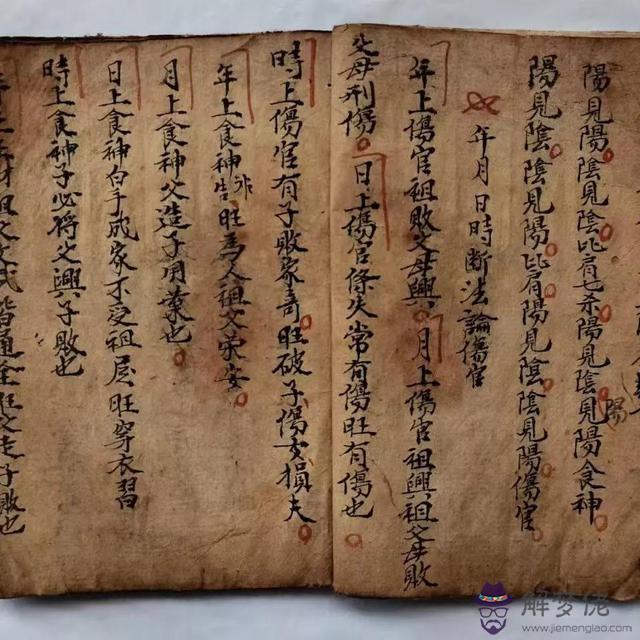 陽見陽陰見陰比肩七杀陽見陰陰見陽食神
陽
陽見陰陰見陽比肩陽見陰陰見陽傷官
年月日時断法論傷官
年上傷官祖敗父母興月上傷官祖興祖父母敗
父母刑傷日上傷官條失常有傷旺有傷也
時上傷官有子敗家奇旺破子傷女損夫
年上食神祚生旺為人祖父荣安
月上食神父造子用業也
日上食神白手成家不受祖居旺穿衣習
時上食神子必将父興子敗也
祖父文武皆通全旺父走子敗也
解梦佬
www.jiemenglao.com